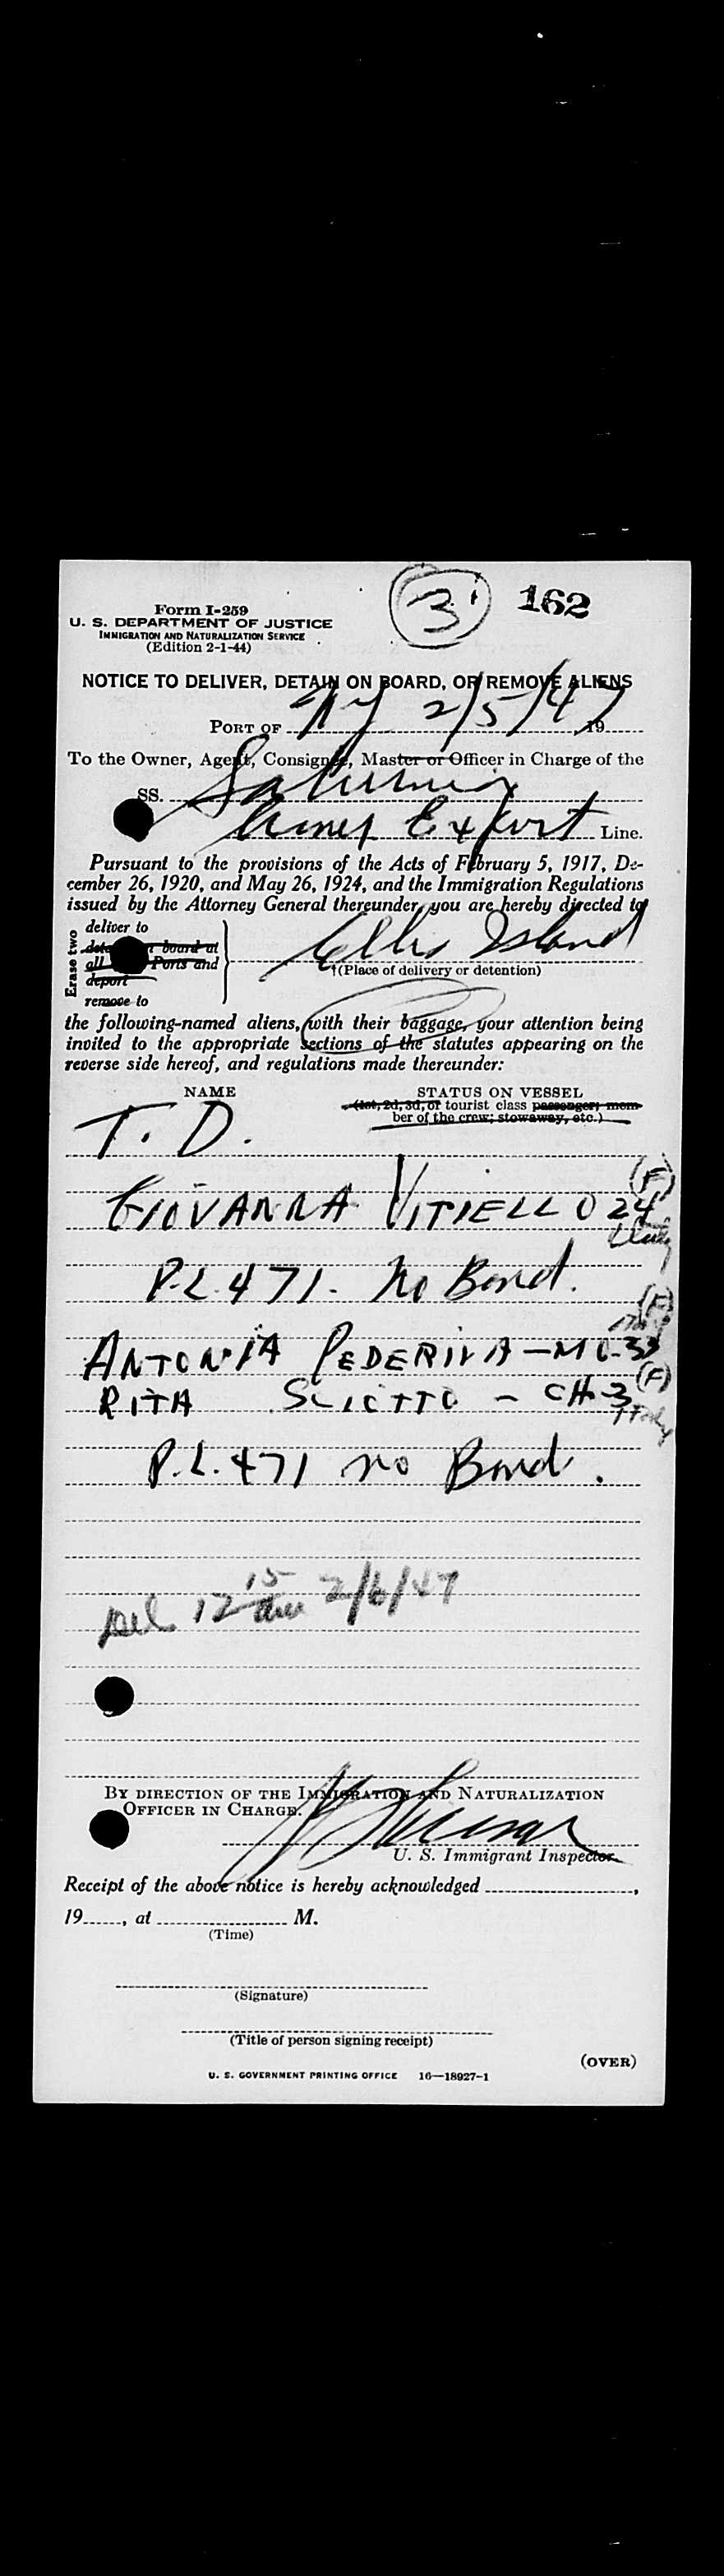 3
162
Form I-259
U. S. DEPARTMENT OF JUSTICE
IMMIGRATION AND NATURALIZATION SERVICE
(Edition 2-1-44)
NOTICE TO DELIVER, DETAIN ON BOARD, OR REMOVE ALIENS
PORT OF NY 2/5/47, 19
To the Owner, Agent, Consignee, Master or Officer in Charge of the
SS. Saturnia
Amer Export Line.
Pursuant to the provisions of the Acts of February 5, 1917, De-
cember 26, 1920, and May 26, 1924, and the Immigration Regulations
issued by the Attorney General thereunder, you are hereby directed to
Erase two
deliver to
board at
all Ports and
deport
remove to
Ellis Island
(Place of delivery or detention)
the following-named aliens, with their baggage, your attention being
invited to the appropriate sections of the statutes appearing on the
reverse side hereof, and regulations made thereunder:
NAME STATUS ON VESSEL
(1st, 2d, 3d, or tourist class passenger; mem-
ber of the crew; stowaway, etc.)
T. D.
(F)
GIOVANNA VITIELLO 24
Italy
P.L. 471. No Bond.
(F)
ANTONIA PEDERIVA - MO-38
RITA SCIOTTO - CH-3 (F)
Italy
P.L. 471 no Bond.
Del 12 15 am 2/6/47
BY DIRECTION OF THE IMMIGRATION AND NATURALIZATION
OFFICER IN CHARGE.
U. S. Immigrant Inspector.
Receipt of the above notice is hereby acknowledged ,
19 , at M.
(Time)
(Signature)
(Title of person signing receipt)
(OVER)
U. S. GOVERNMENT PRINTING OFFICE 16—18927-1